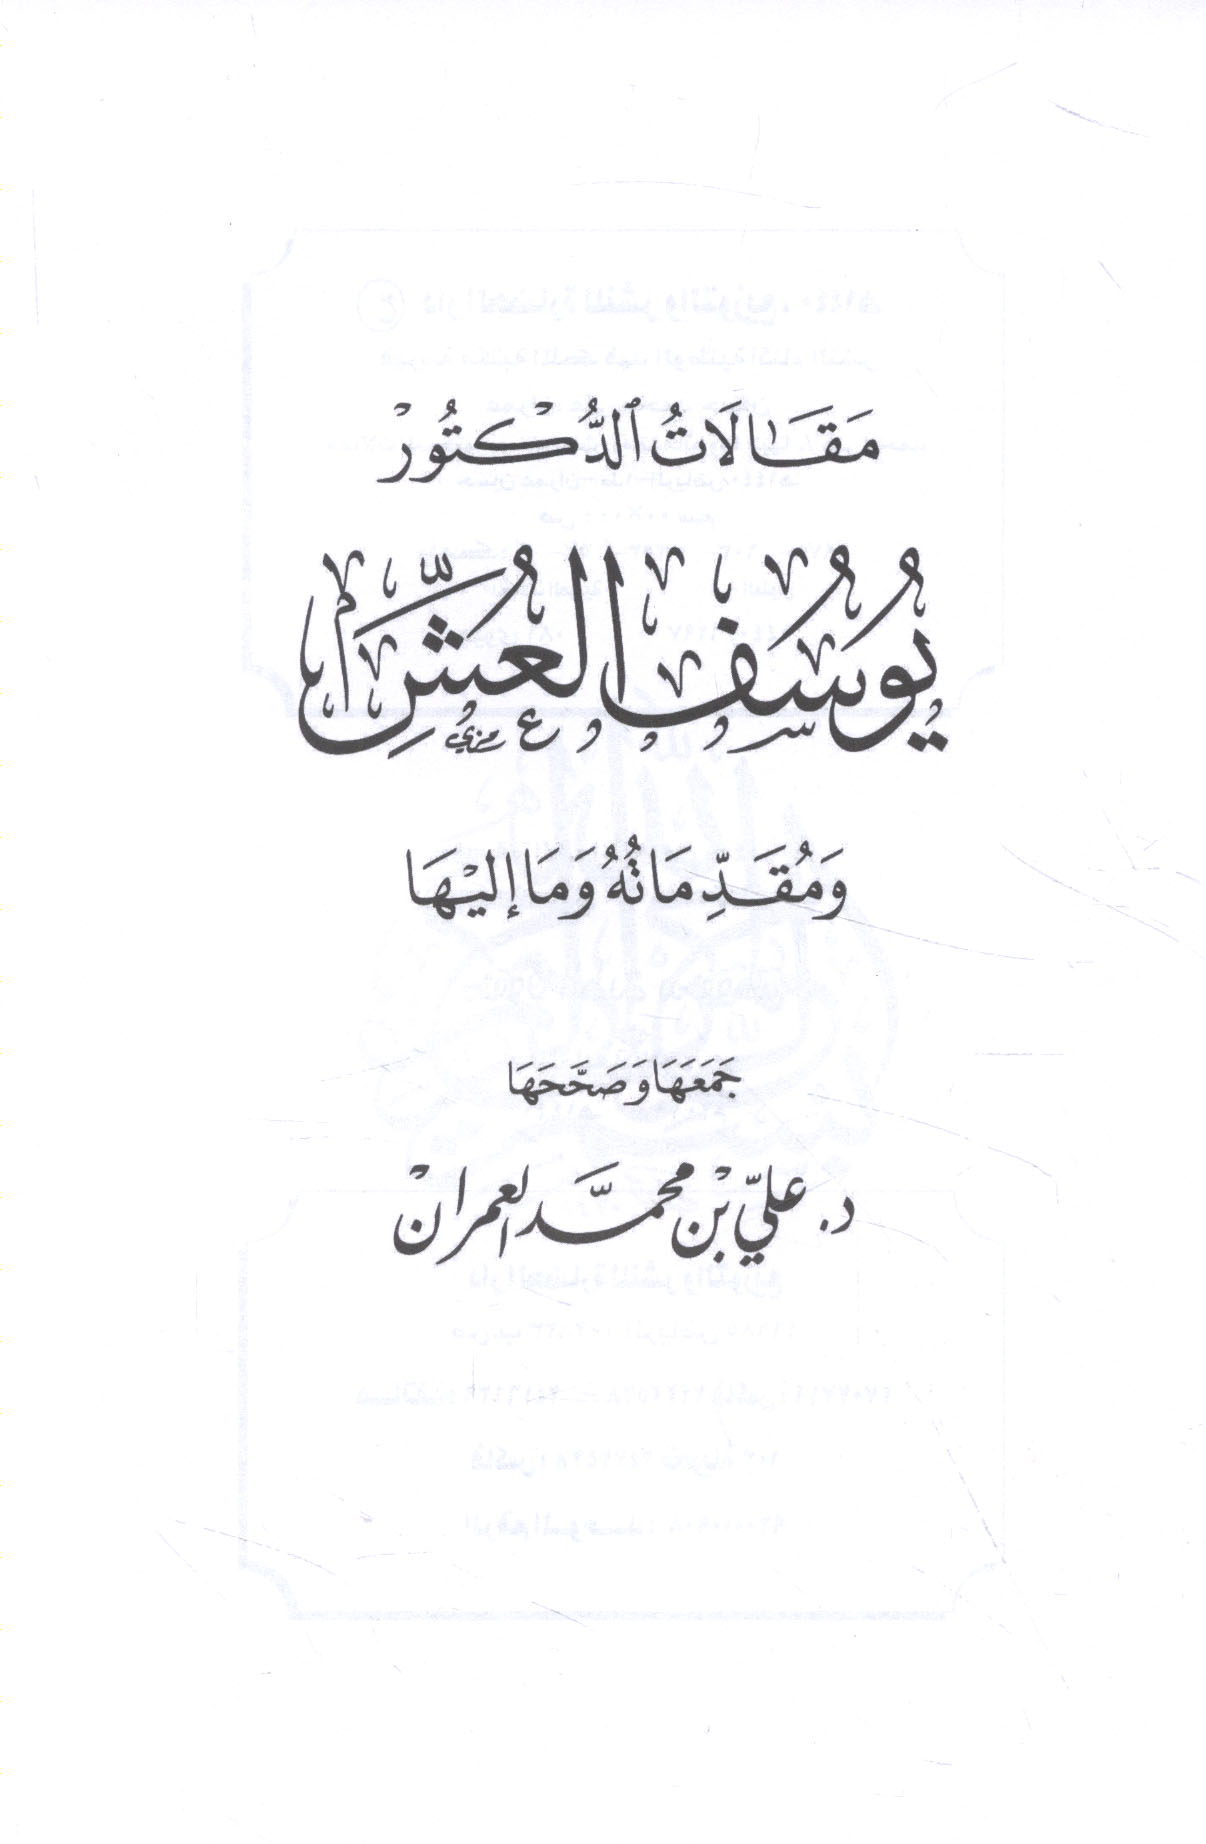 مَقَالَاتُ ٱلدُّكْتُورْ
يُوسُفَ العُشّ
وَمُقَدِّمَاتُهُ وَمَا إِلَيْهَا
جَمَعَهَا وَصَحَّحَهَا
د. عَلِيّ بْن مُحَمَّد العِمْرَانْ